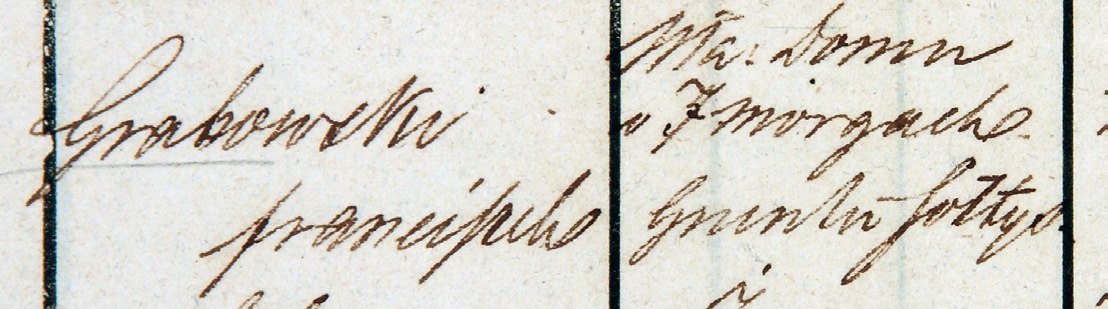 Grabowski
franciszek
Wła: Domu
o 7 morgach
Gruntu sołtys